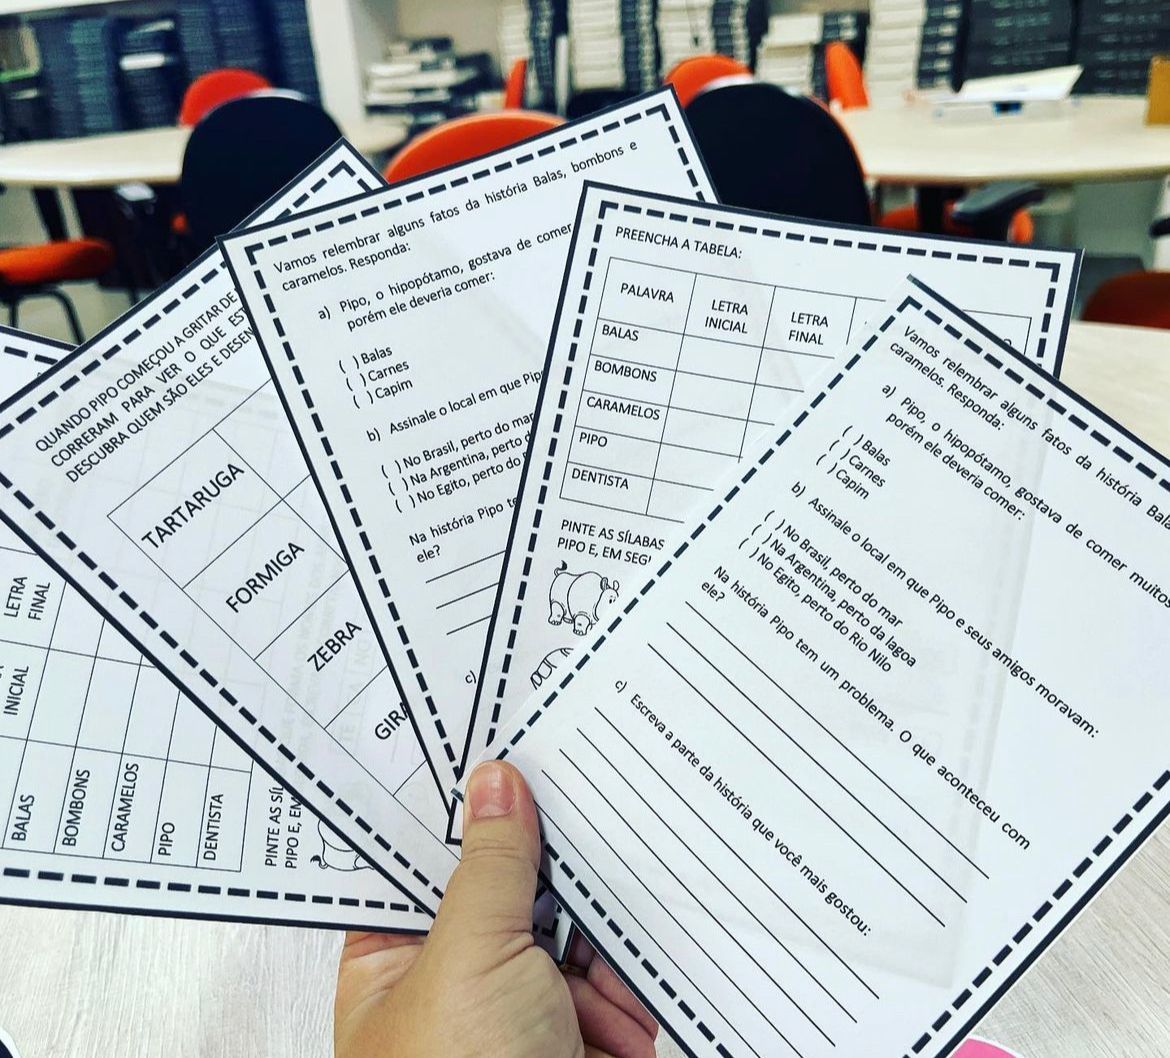 LETRA
FINAL
INICIAL
BALAS
BOMBONS
CARAMELOS
PIPO
DENTISTA
PINTE AS
PIPO E,
QUANDO PIPO COMEÇOU A GRITAR DE
CORRERAM PARA VER O QUE
DESCUBRA QUEM SÃO ELES E
TARTARUGA
FORMIGA
ZEBRA
Vamos relembrar alguns fatos da história Balas, bombons e
caramelos. Responda:
a) Pipo, o hipopótamo, gostava de comer
porém ele deveria comer:
( ) Balas
( ) Carnes
( ) Capim
b) Assinale o local em que
( ) No Brasil, perto do mar
( ) Na Argentina, perto
( ) No Egito, perto do
Na história Pipo
ele?
c)
PREENCHA A TABELA:
PALAVRA
LETRA
INICIAL
LETRA
FINAL
BALAS
BOMBONS
CARAMELOS
PIPO
DENTISTA
PINTE AS SÍLABAS
PIPO E, EM
Vamos relembrar alguns fatos da história
caramelos. Responda:
a) Pipo, o hipopótamo, gostava de comer
porém ele deveria comer:
( ) Balas
( ) Carnes
( ) Capim
b) Assinale o local em que Pipo e seus amigos moravam:
( ) No Brasil, perto do mar
( ) Na Argentina, perto da lagoa
( ) No Egito, perto do Rio Nilo
Na história Pipo tem um problema. O que aconteceu com
ele?
c) Escreva a parte da história que você mais gostou: